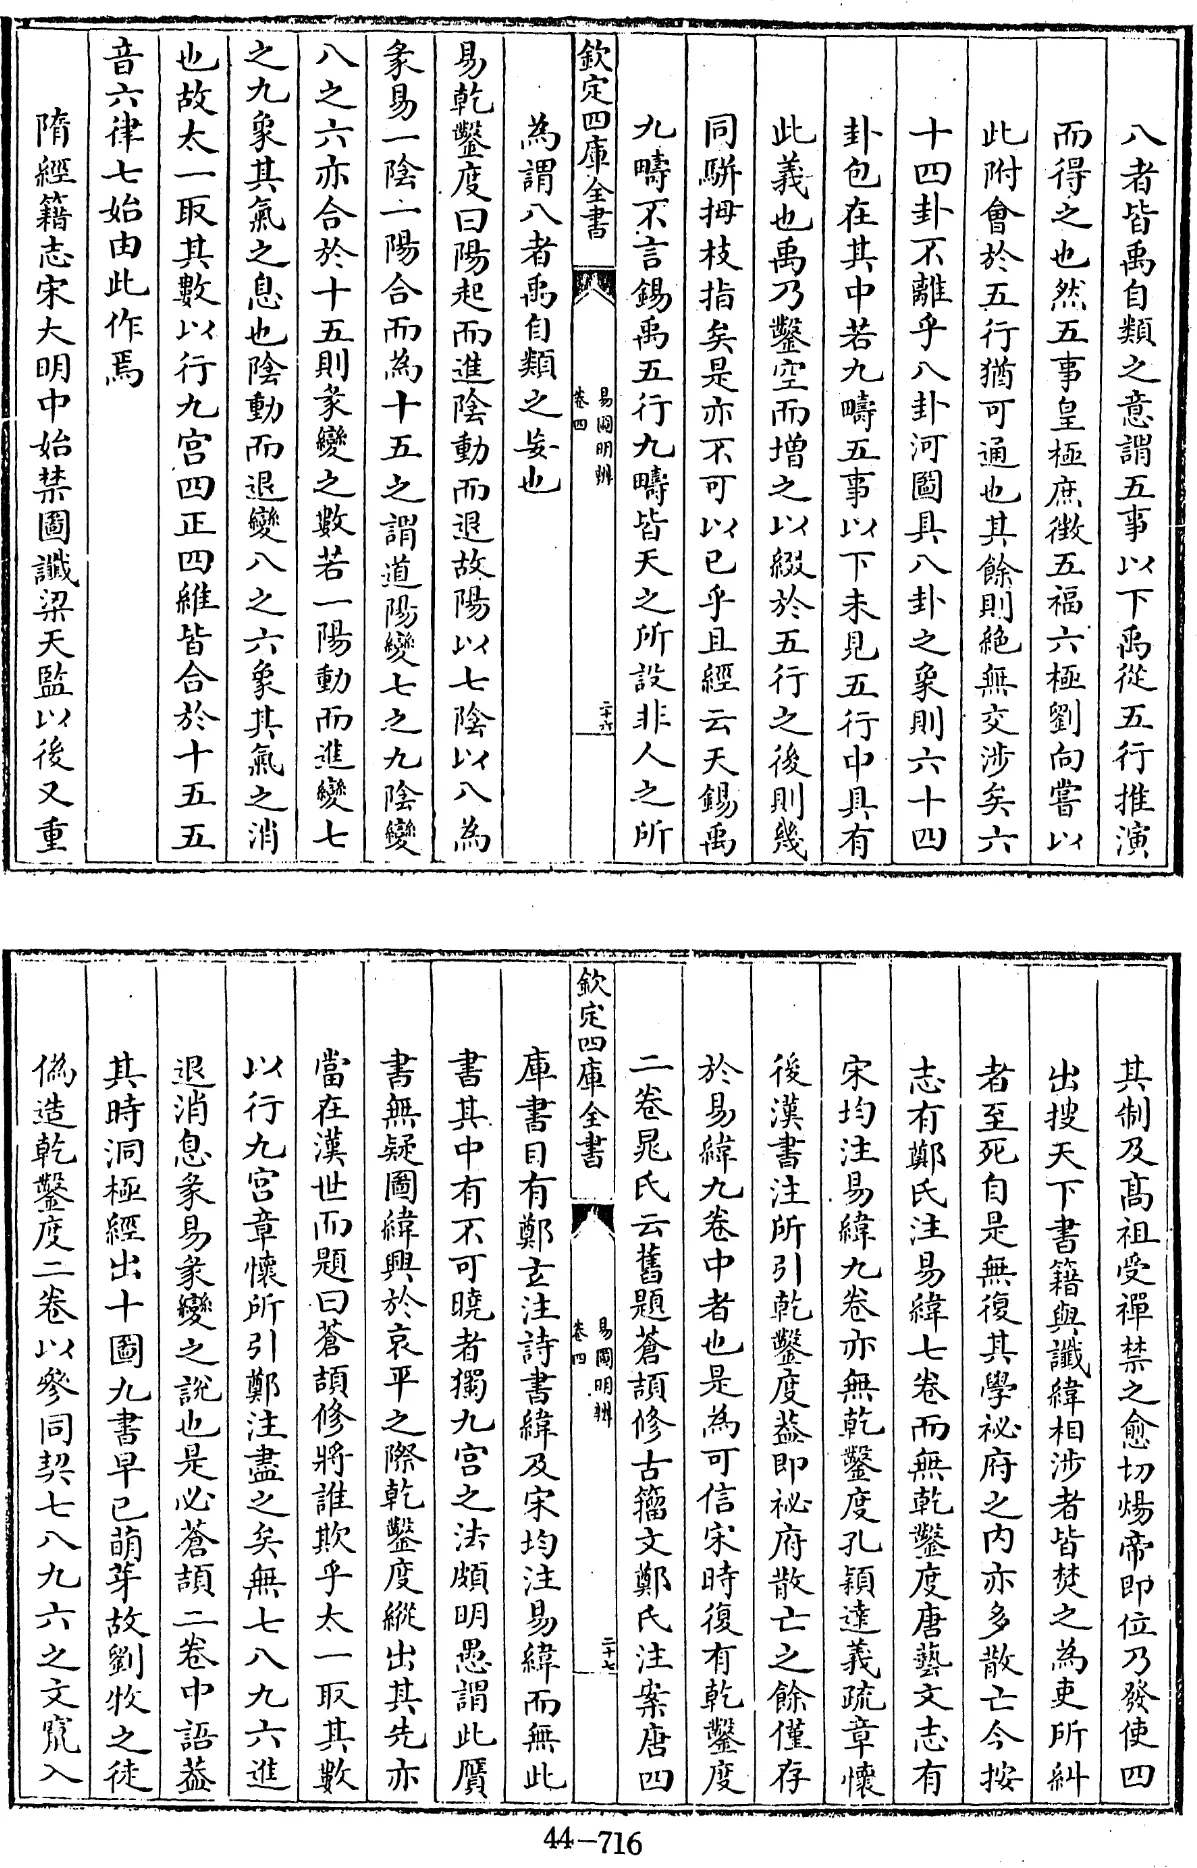 八者皆禹自類之意謂五事以下禹從五行推演
而得之也然五事皇極庶徵五福六極劉向嘗以
此附會於五行猶可通也其餘則絶無交涉矣六
十四卦不離乎八卦河圖具八卦之象則六十四
卦包在其中若九疇五事以下未見五行中具有
此義也禹乃鑿空而增之以綴於五行之後則幾
同駢拇枝指矣是亦不可以已乎且經云天錫禹
九疇不言錫禹五行九疇皆天之所設非人之所
欽定四庫全書
易圖明辨
卷四
二十六
為謂八者禹自類之妄也
易乾鑿度曰陽起而進陰動而退故陽以七陰以八為
彖易一陰一陽合而為十五之謂道陽變七之九陰變
八之六亦合於十五則彖變之數若一陽動而進變七
之九象其氣之息也陰動而退變八之六象其氣之消
也故太一取其數以行九宫四正四維皆合於十五五
音六律七始由此作焉
隋經籍志宋大明中始禁圖讖梁天監以後又重
其制及髙祖受禪禁之愈切煬帝即位乃發使四
出搜天下書籍與讖緯相涉者皆焚之為吏所糾
者至死自是無復其學祕府之内亦多散亡今按
志有鄭氏注易緯七卷而無乾鑿度唐藝文志有
宋均注易緯九卷亦無乾鑿度孔穎達義疏章懷
後漢書注所引乾鑿度葢即祕府散亡之餘僅存
於易緯九卷中者也是為可信宋時復有乾鑿度
二卷晁氏云舊題蒼頡修古籀文鄭氏注案唐四
欽定四庫全書
易圖明辨
卷四
二十七
庫書目有鄭玄注詩書緯及宋均注易緯而無此
書其中有不可曉者獨九宫之法頗明愚謂此贋
書無疑圖緯興於哀平之際乾鑿度縱出其先亦
當在漢世而題曰蒼頡修將誰欺乎太一取其數
以行九宫章懷所引鄭注盡之矣無七八九六進
退消息彖易彖變之説也是必蒼頡二卷中語葢
其時洞極經出十圖九書早已萌芽故劉牧之徒
偽造乾鑿度二卷以參同契七八九六之文竄入
44-716